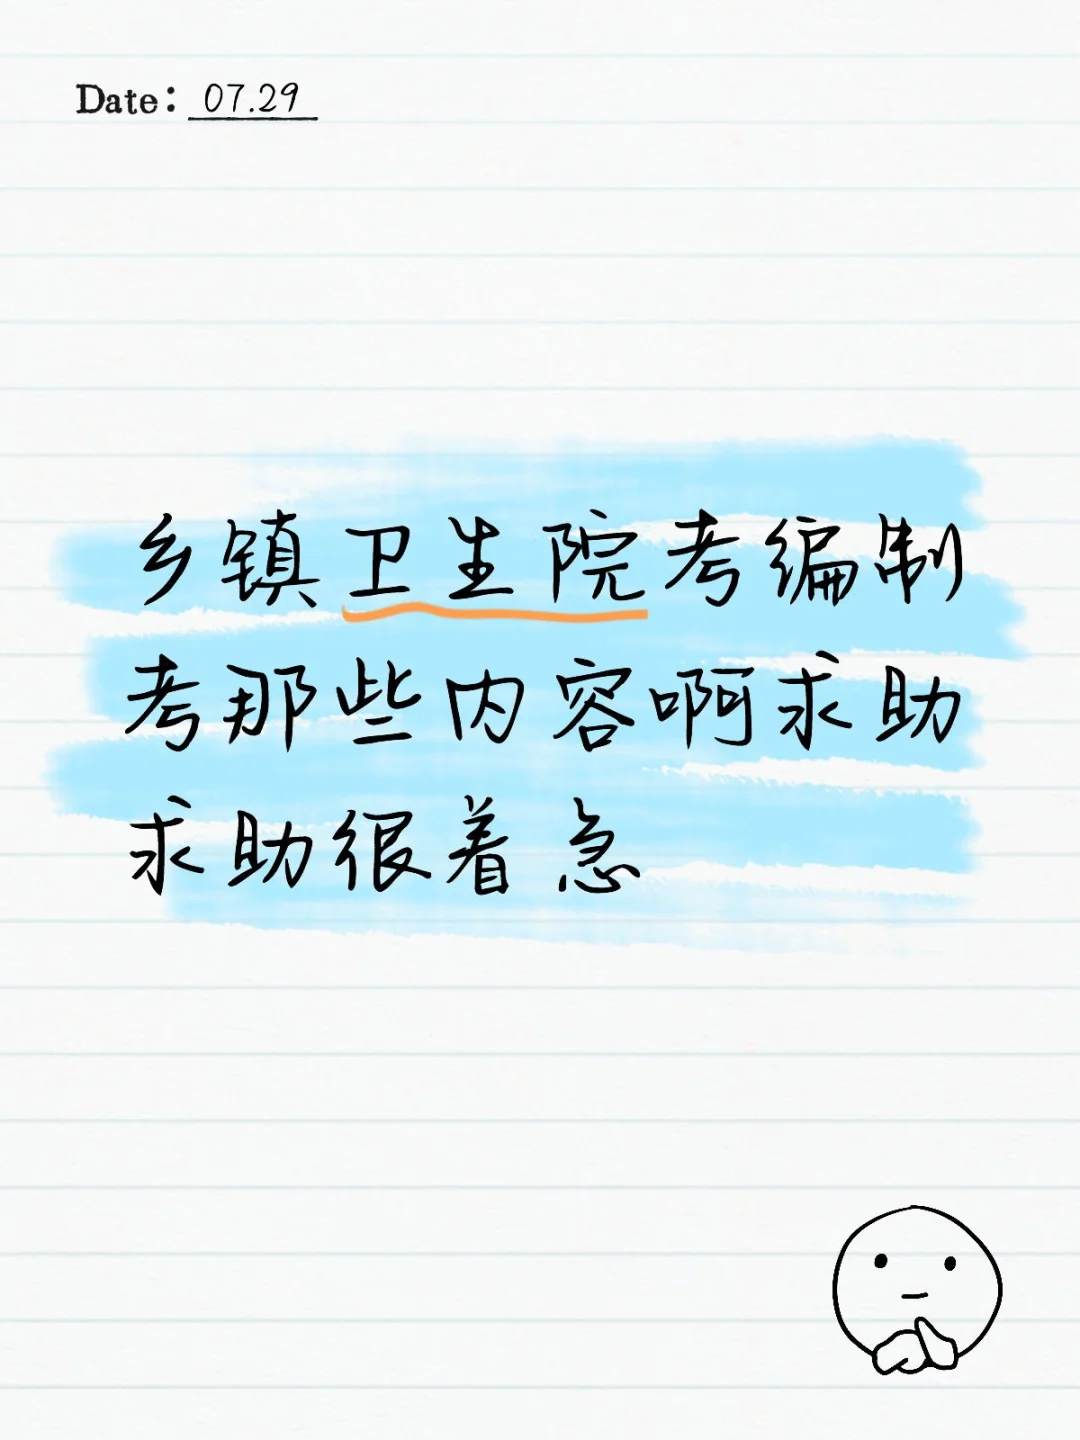 Date: 07.29
乡镇卫生院考编制
考那些内容啊求助
求助很着急